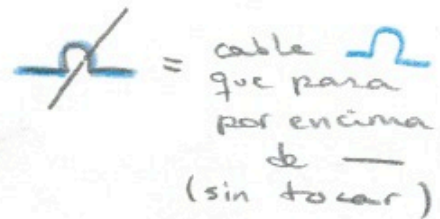 = cable
que pasa
por encima
de —
(sin tocar)